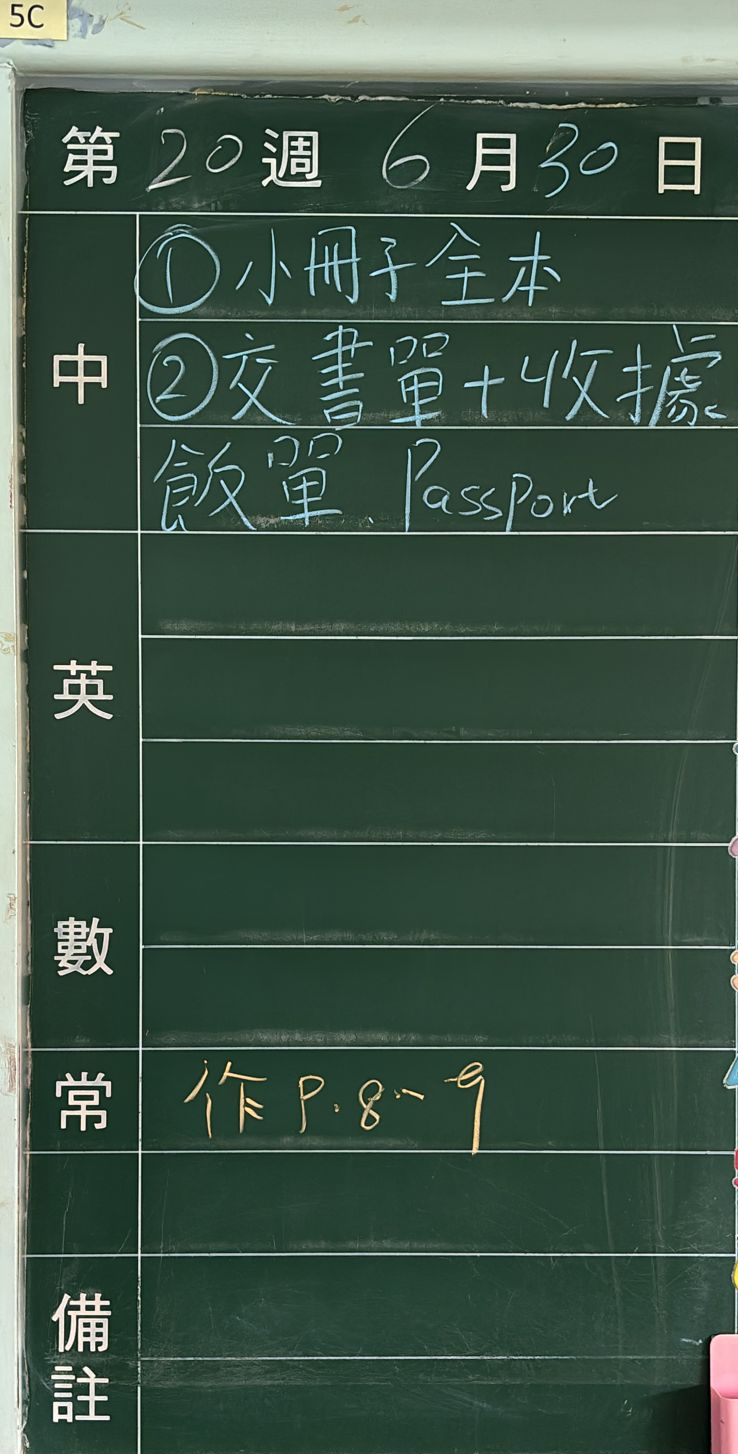 5C
第20週 6月30日
中
①小冊子全本
②交書單+收據
飯單、Passport
英
數
常
作P.8~9
備註